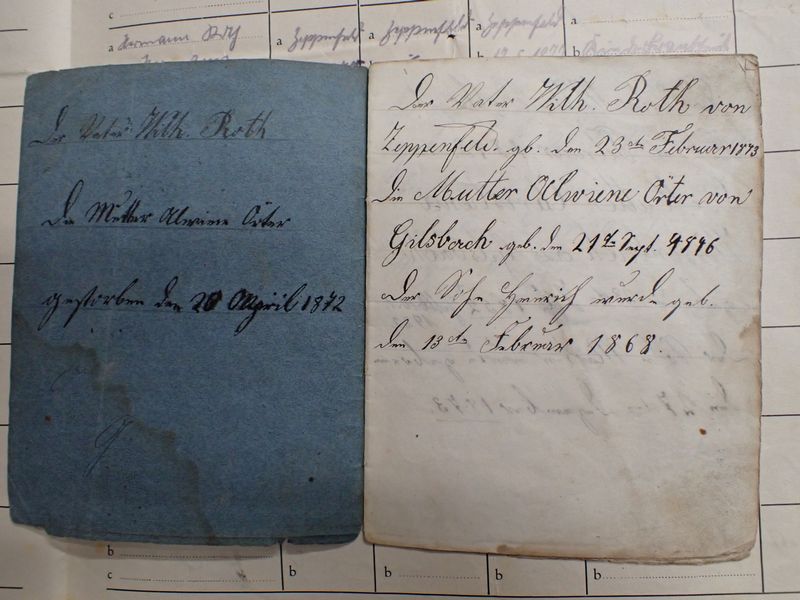 c
a Hermann Roth
a Zeppenfeld
a Zeppenfeld
a Zeppenfeld
a
b
b
Der Vater Wilh. Roth
Die Mutter Alwiene Örter
gestorben den 20 April 1872
Der Vater Wilh. Roth von
Zeppenfeld. gb. den 23te Februar 1873
Die Mutter Allwiene Örter von
Gilsbach geb. den 21te Sept. 4846
Der Sohn Heinrich wurde geb.
den 13te Februar 1868.
b
c
b
b
b
b